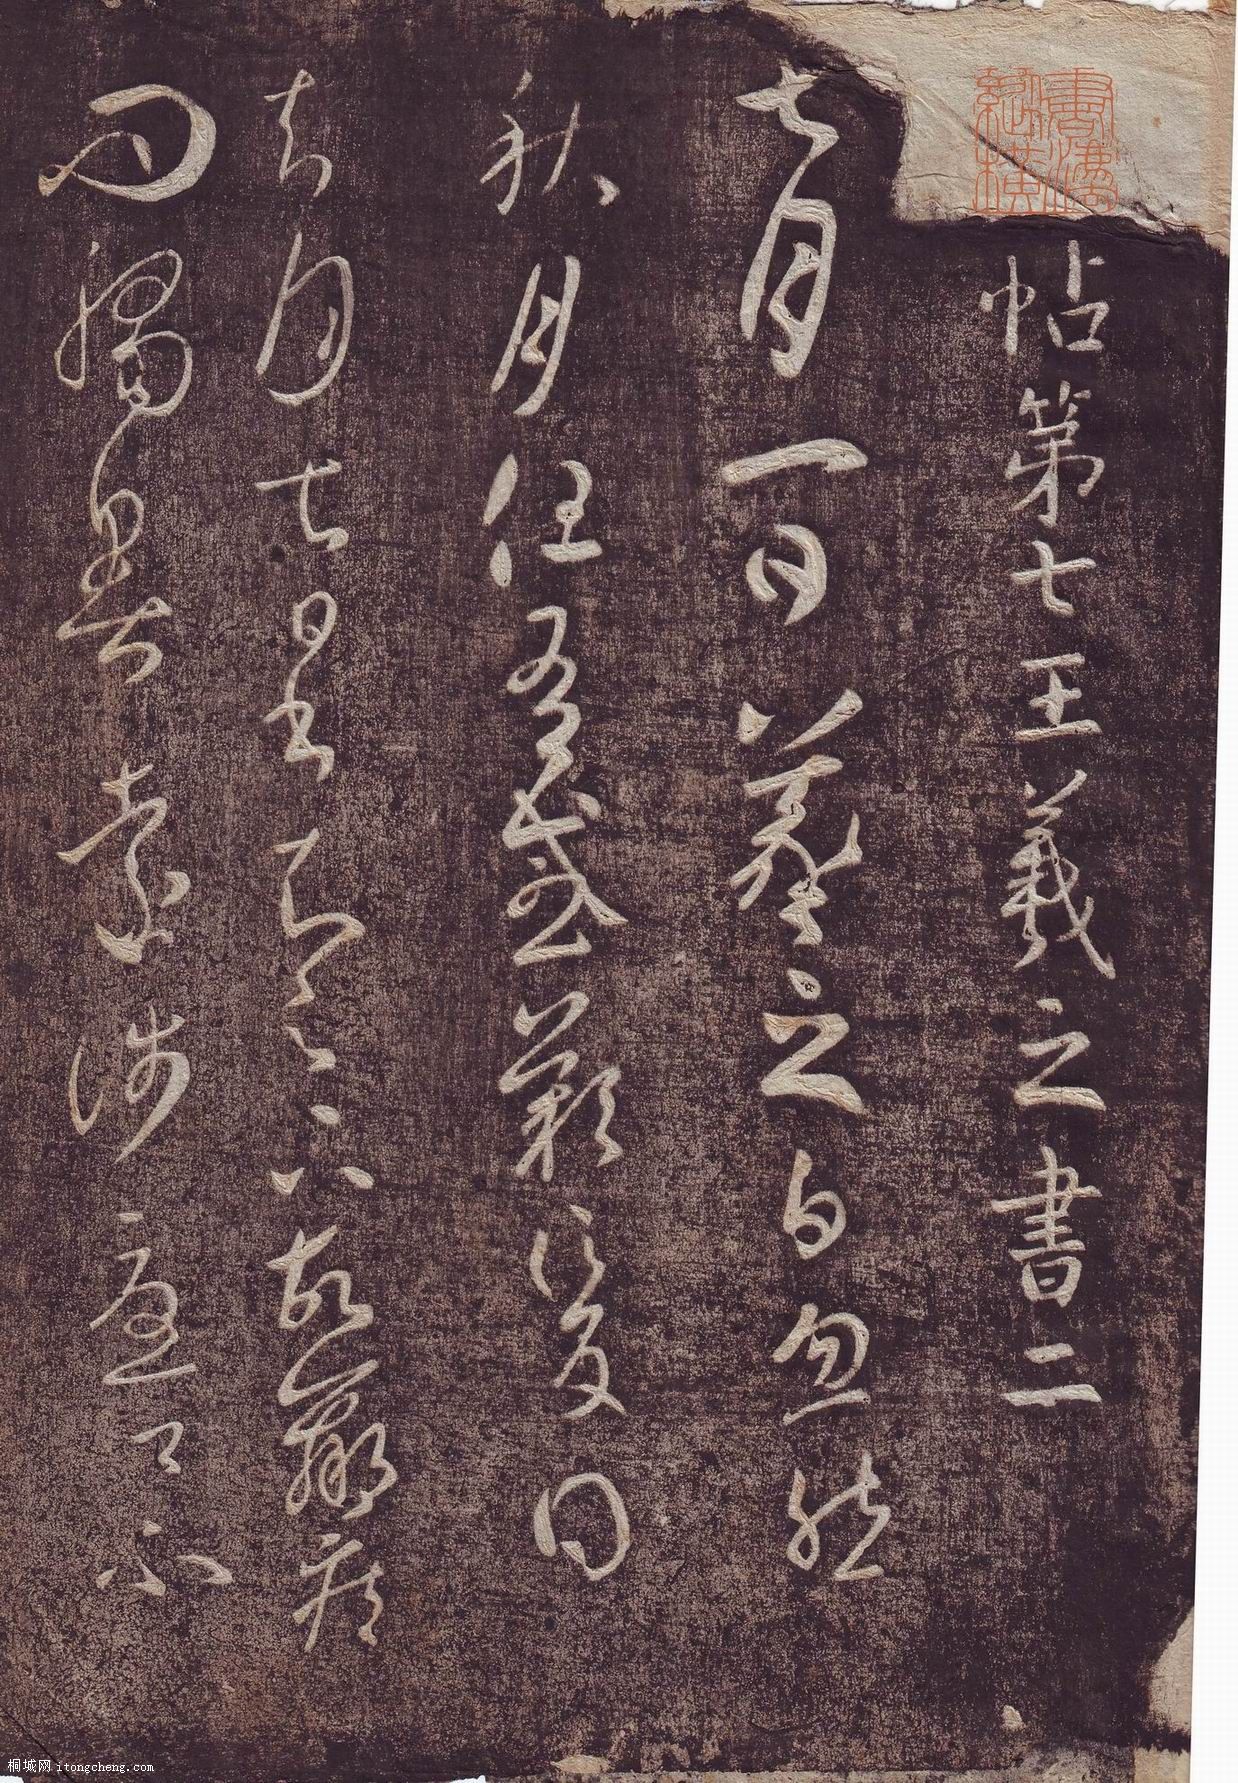 帖第七王羲之書二
七月一日羲之白忽然
秋月但有感歎信反得
去月七日書知足下故羸疾
問觸暑遠涉憂卿不
桐城网 itongcheng.com